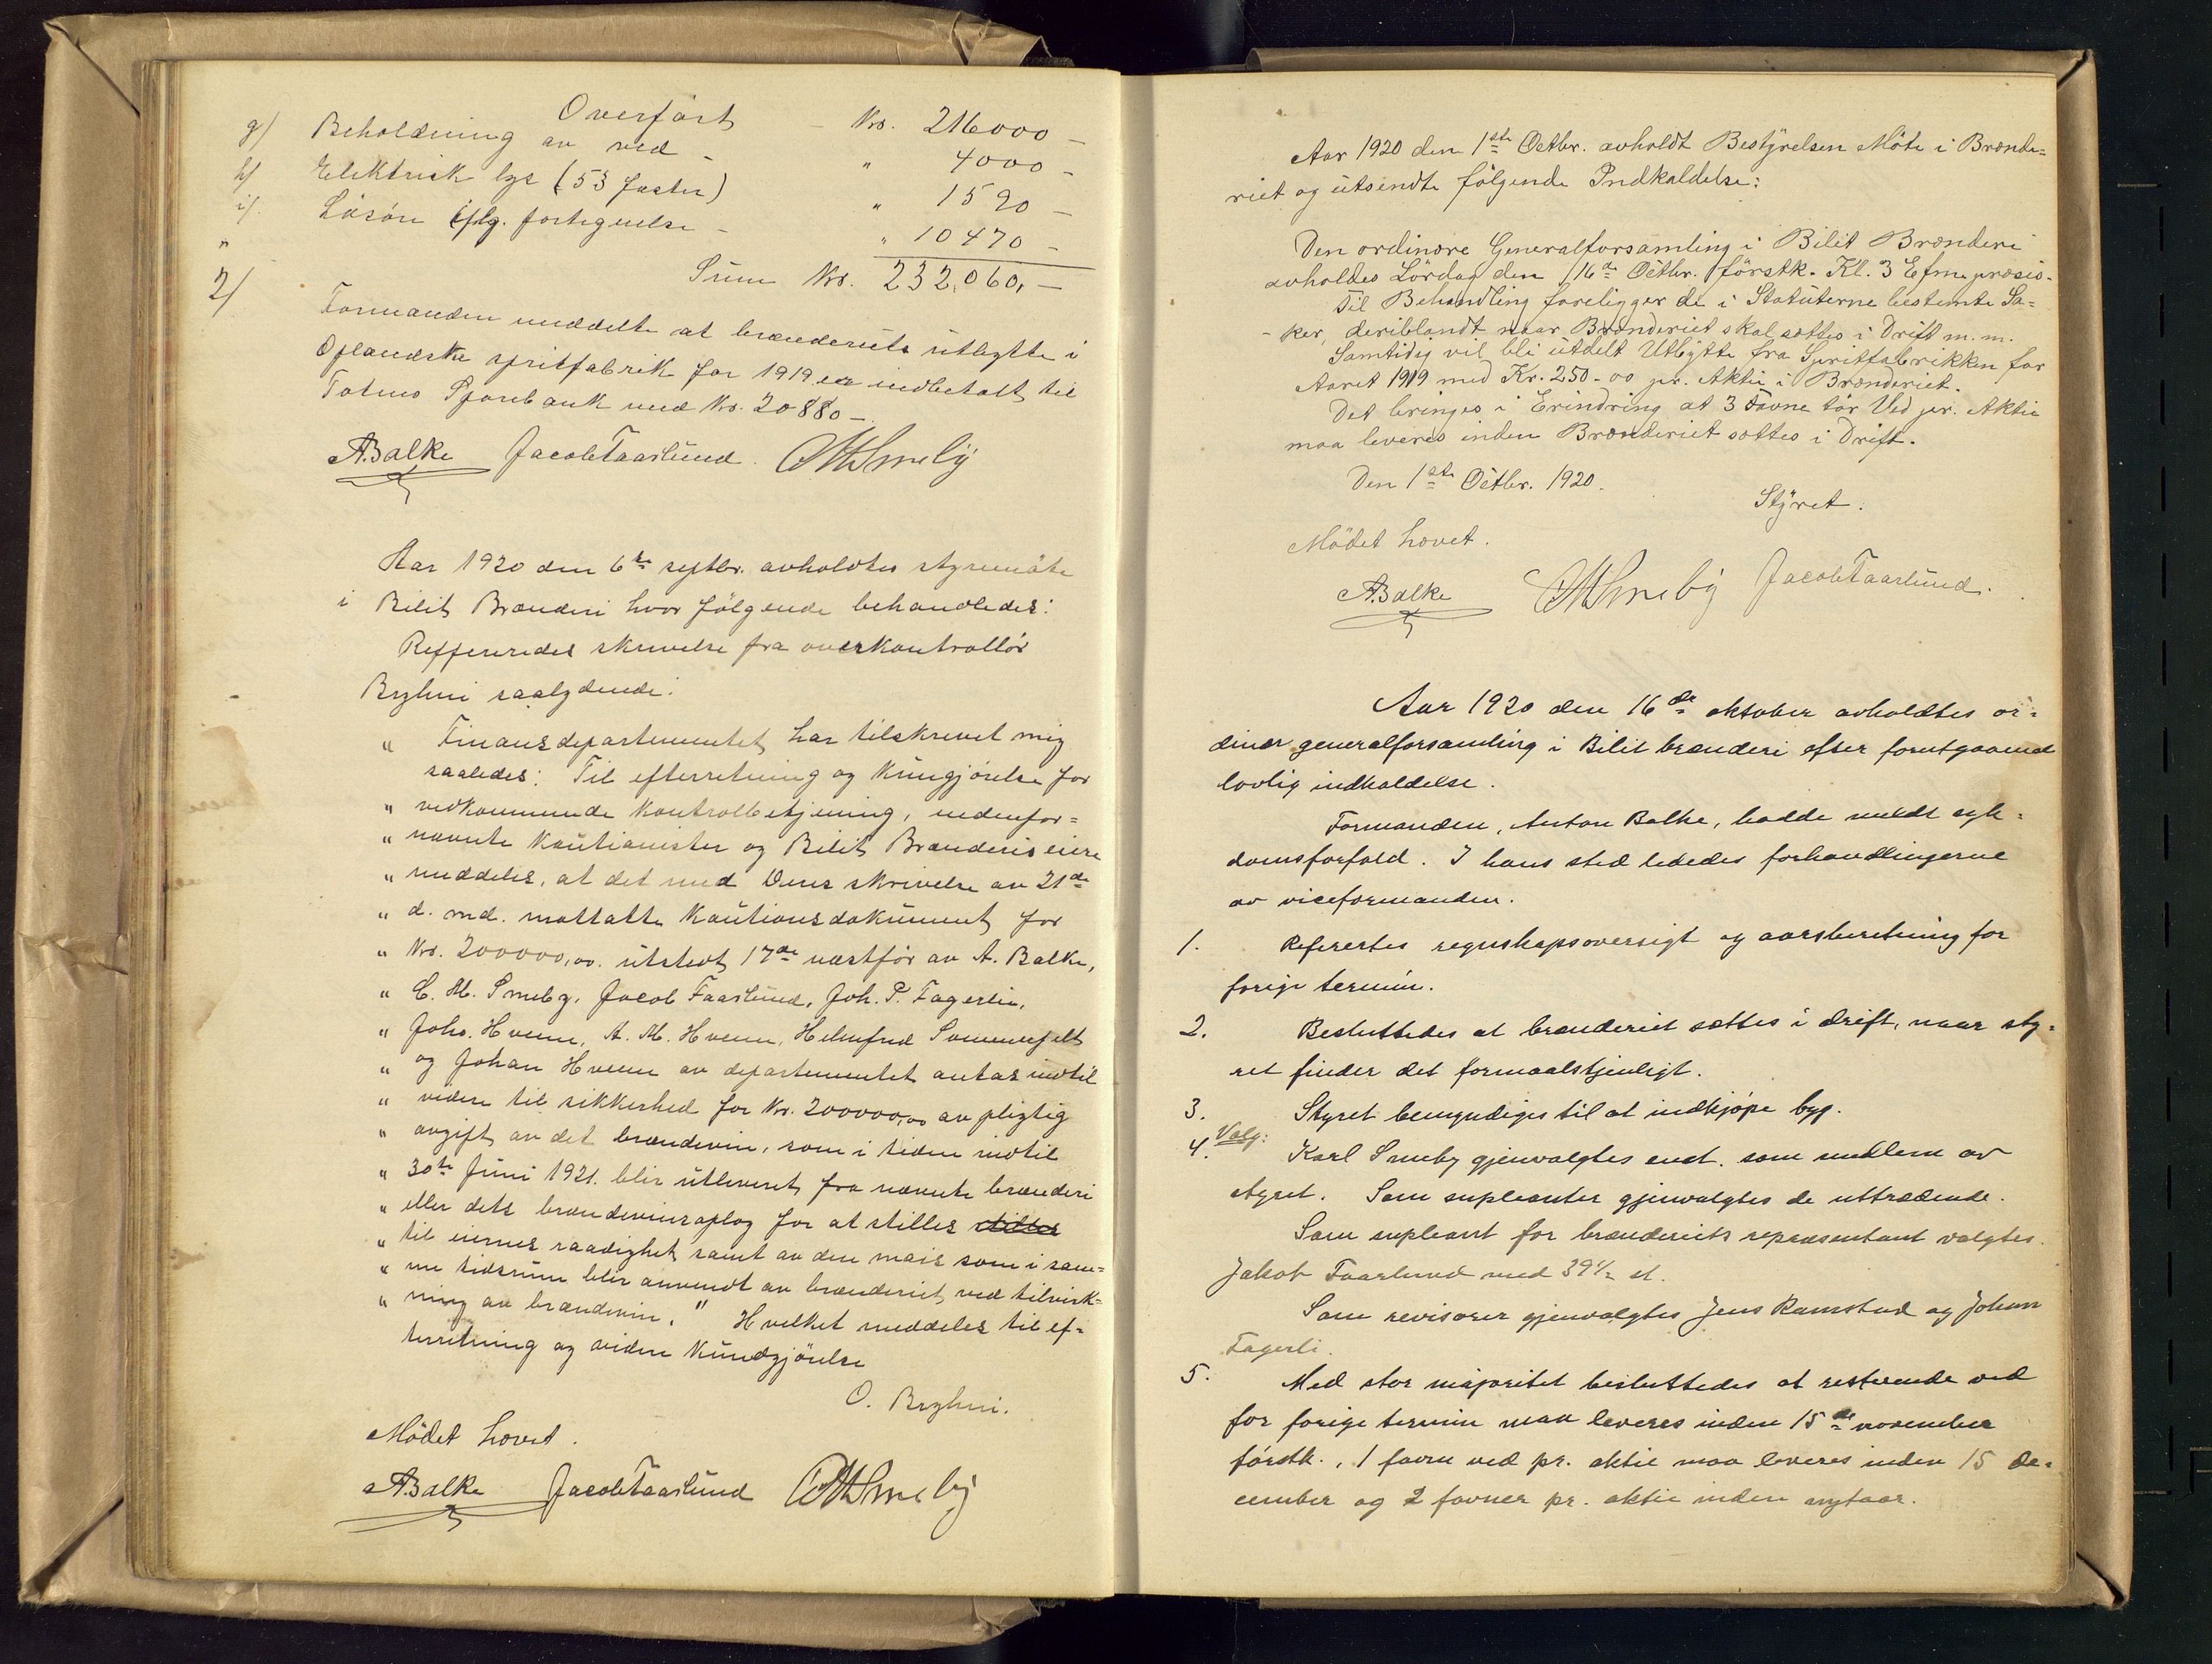 Overfört - Kr. 216000 -
g) Beholdning av ved - " 4000 -
h) Elektrisk lys (53 faster) " 1590 -
i). Lösöre iflg. fortegnelse - " 10470 -
" Sum Kr. 232,060, -
2) Formanden meddelte at brænderiets utbytte i
Oplandske spritfabrik for 1919 er indbetalt til
Totens Sparebank med Kr. 20880 -
A.Balke Jacob Faarlund. C M Smeby
Aar 1920 den 6te septbr. avholdtes styremöte
i Bilit Brænderi hvor fölgende behandledes:
Reffereredes skrivelse fra overkontrollör
Bryhni saalydende:
" Finansdepartementet har tilskrevet mig
saaledes: Til efterretning og kungjörelse for
" vedkommende kontrolbetjening, nedenfor=
" nævnte kautionister og Bilit Brænderis eiere
" meddeles, at det med Deres skrivelse av 21de
" d. md. mottatte kautionsdokument for
" Kr. 200000,00. utstedt 17de næstför av A. Balke,
" C. M. Smeby, Jacob Faarlund, Joh. P. Fagerlie,
" Johs. Hveem, A. M. Hveem, Helmfred Sommerfelt
" og Johan Hveem av departementet antas indtil
" videre til sikkerhed for Kr. 200000,00 av pligtig
" avgift av det brændevin, som i tiden indtil
" 30te Juni 1921. blir utleveret fra nævnte brænderi
" eller dets brændevinsoplag for at stilles stilles
" til eiernes raadighet samt av den mais som i sam=
" me tidsrum blir anvendt av brænderiet ved tilvirk=
" ning av brændevin." Hvilket meddeles til ef=
terretning og videre kundgjörelse
O. Bryhni.
Mödet hævet.
A.Balke Jacob Faarlund C M Smeby
Aar 1920 den 1ste Octbr. avholdt Bestyrelsen Möte i Brænde=
riet og utsendte fölgende Indkaldelse:
Den ordinære Generalforsamling i Bilit Brænderi
avholdes Lördag den 16de Octbr. förstk. Kl. 3 Efm. præsis.
Til Behandling foreligger de i Statuterne bestemte Sa=
- ker, deriblandt naar Brænderiet skal sættes i Drift m. m.
Samtidig vil bli utdelt Utbytte fra Spritfabrikken for
Aaret 1919 med Kr. 250-00 pr. Aktie i Brænderiet.
Det bringes i Erindring at 3 Favne tör Ved pr. Aktie
maa leveres inden Brænderiet sættes i Drift.
Den 1ste Octbr. 1920.
Styret.
Mödet hævet.
A.Balke C M Smeby Jacob Faarlund.
Aar 1920 den 16de oktober avholdtes or=
dinær generalforsamling i Bilit brænderi efter forutgaaende
lovlig indkaldelse.
Formanden, Anton Balke, hadde meldt syk=
domsforfald. I hans sted lededes forhandlingerne
av viceformanden.
1. Referertes regnskapsoversigt og aarsberetning for
forige termin.
2. Besluttedes at brænderiet sættes i drift, naar sty=
ret finder det formaalstjenligt.
3. Styret bemyndiges til at indkjöpe byg.
4. Valg: Karl Smeby gjenvalgtes enst. som medlem av
styret. Som supleanter gjenvalgtes de uttrædende.
Som supleant for brænderiets repræsentant valgtes
Jakob Faarlund med 39½ st.
Som revisorer gjenvalgtes Jens Ramstad og Johan
Fagerli.
5. Med stor majoritet besluttedes at resterende ved
for forige termin maa leveres inden 15de november
förstk., 1 favn ved pr. aktie maa leveres inden 15 de=
cember og 2 favner pr. aktie inden nytaar.